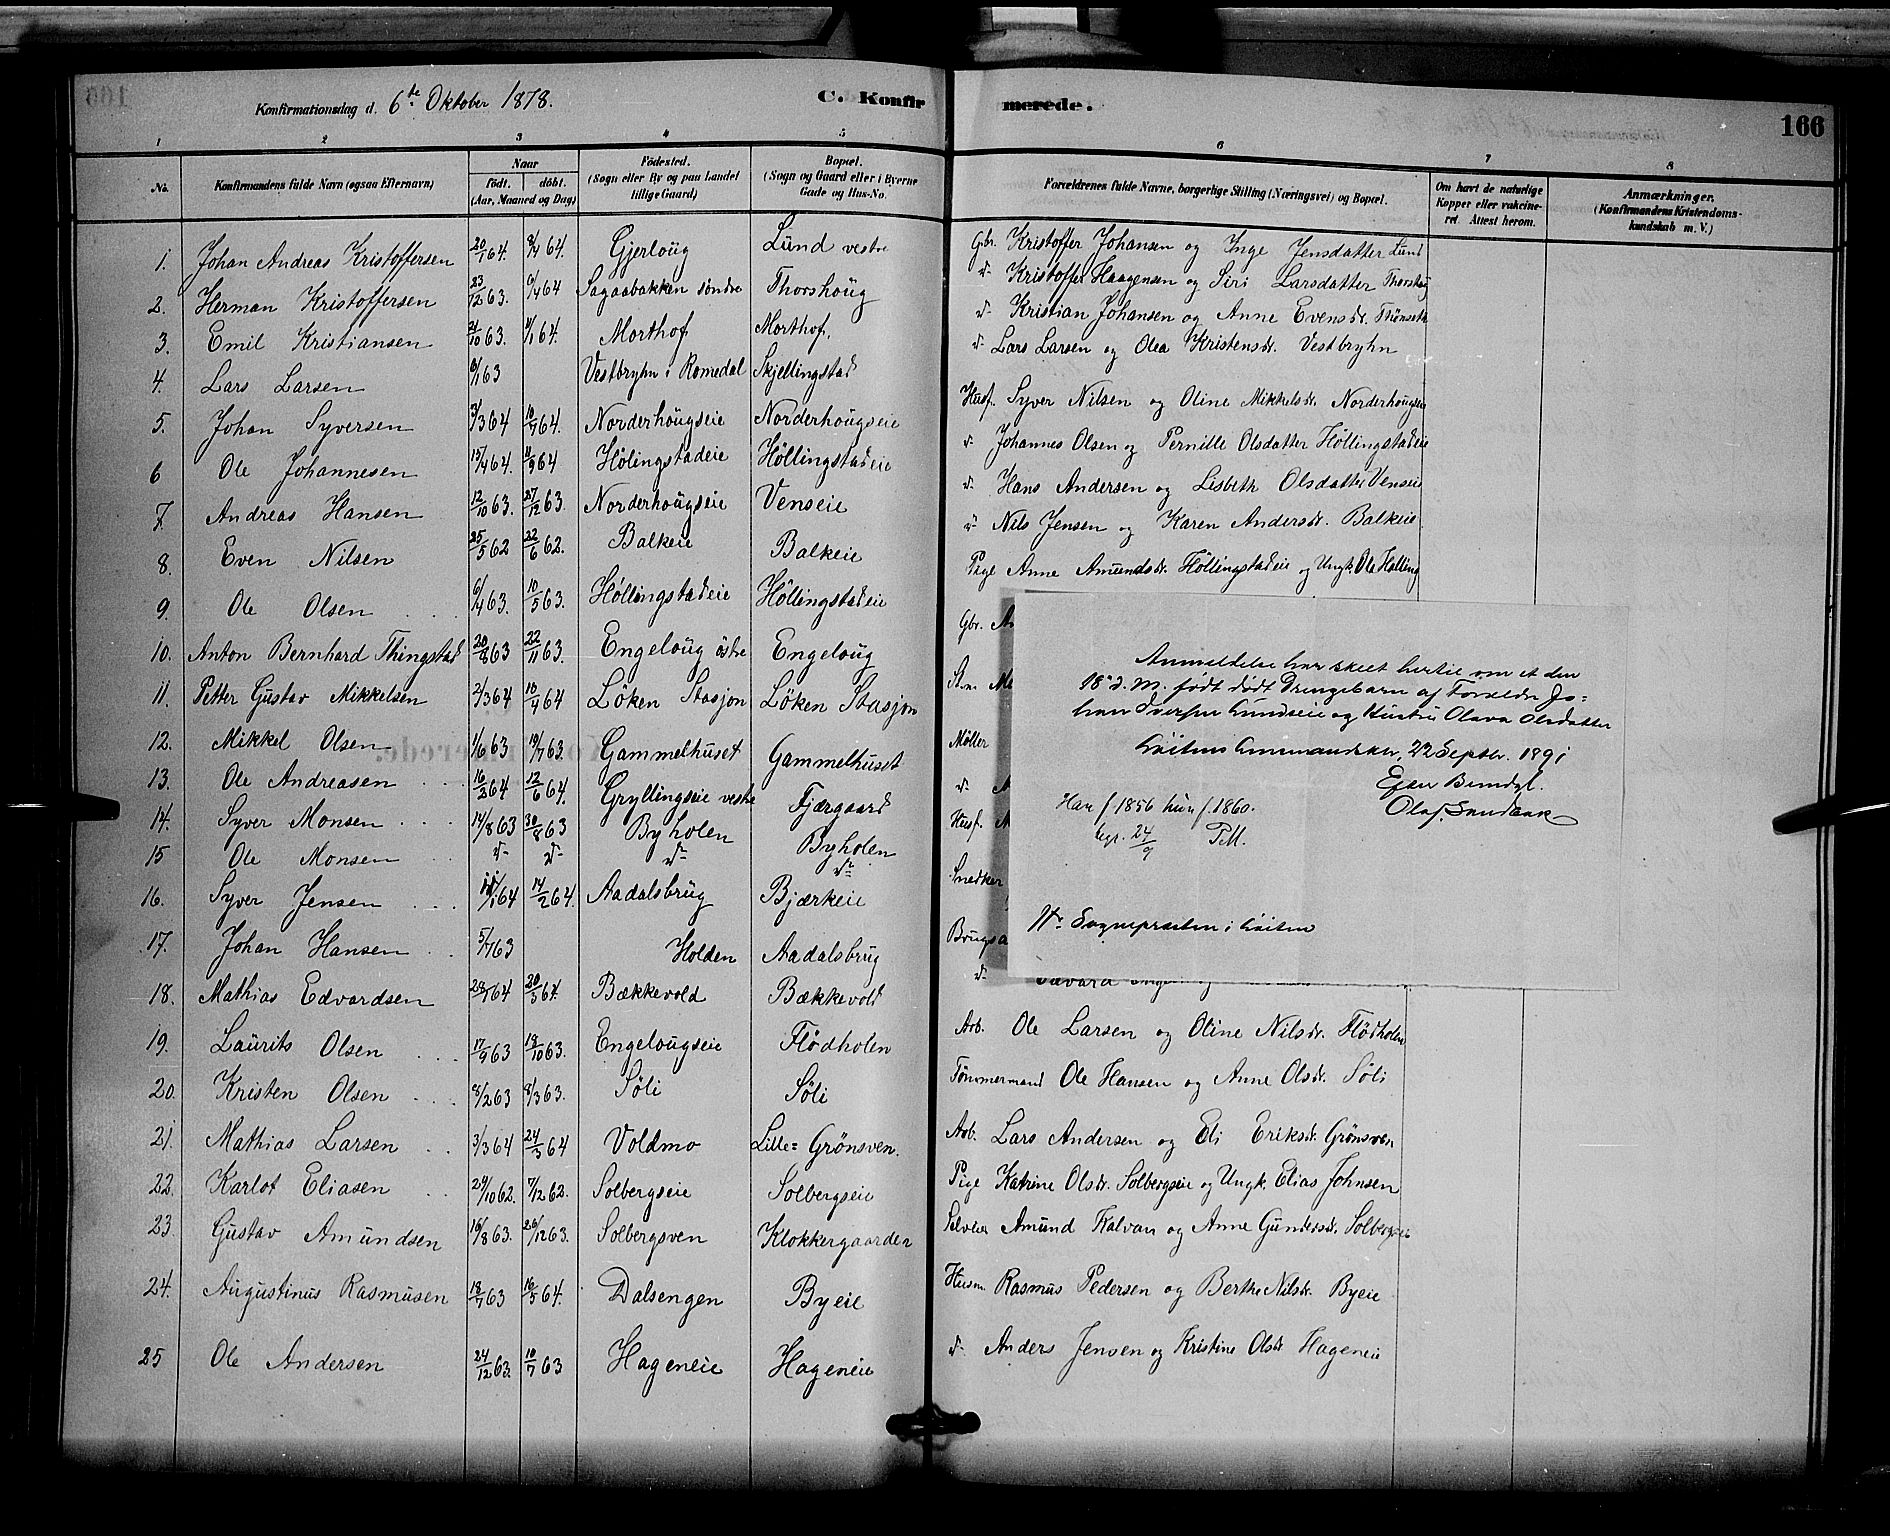 Konfirmationsdag d. 6te Oktober 1878.
C. Konfirmerede.
166
1 2 3 4 5 6 7 8
No. Konfirmandens fulde Navn (ogsaa Efternavn) Naar født. døbt. (Aar, Maaned og Dag) Fødested. (Sogn eller By og paa Landet tillige Gaard) Bopæl. (Sogn og Gaard eller i Byerne Gade og Hus-No. Forældrenes fulde Navne, borgerlige Stilling (Næringsvei) og Bopæl. Om havt de naturlige Kopper eller vakcineret. Attest herom. Anmærkninger. (Konfirmandens Kristendomskundskab m. V.)
1. Johan Andreas Kristoffersen 20/1 64. 8/4 64. Gjerloug Lund vestre Gbr. Kristoffer Johansen og Inge Jensdatter Lund
2. Herman Kristoffersen 23/12 63. 6/4 64 Sagaabakken søndre Thorshoug Kristoffer Haagensen og Siri Larsdatter
3. Emil Kristiansen 21/10 63. 1/1 64. Morthof Morthof. Kristian Johansen og Anne Evensdr.
4. Lars Larsen 6/1 63 Vestbryhn i Romedal Skjellingstad Lars Larsen og Olea Kristensdr. Vestbryhn
5. Johan Syversen 3/3 64 10/7 64. Norderhougseie Norderhougseie Husf. Syver Nilsen og Oline Mikkelsdr. Norderhougseie
6 Ole Johannesen 15/4 64. 11/9 64 Hölingstadeie Höllingstadeie Johannes Olsen og Pernille Olsdatter Höllingstadeie
7. Andreas Hansen 12/10 63. 27/12 63. Norderhougseie Venseie Hans Andersen og Lisbeth Olsdatter Venseie
8. Even Nilsen 25/5 62 22/6 62. Balkeie Balkeie Nils Jensen og Karen Andersdr. Balkeie
9. Ole Olsen 6/4 63. 10/5 63. Höllingstadeie Höllingstadeie Pige Anne Amundsdr. Höllingstadeie og Ungk. Ole Hölling
10. Anton Bernhard Thingstad 20/8 63 22/11 63. Engeloug östre Engeloug Gbr.
11. Petter Gustav Mikkelsen 2/3 64 10/4 64 Löken Stasjon Löken Stasjon
12. Mikkel Olsen 1/6 63 19/7 63. Gammelhuset Gammelhuset Møller
13. Ole Andreasen 16/2 64 12/6 64. Gryllingseie vestre Fjærgaard
14. Syver Monsen 14/8 63 30/8 63 Byholen Byholen Husf.
15 Ole Monsen
16. Syver Jensen 1/1 64 14/2 64. Aadalsbrug Bjærkeie Snedker
17. Johan Hansen 5/7 63 Holden Aadalsbrug
18. Mathias Edvardsen 28/1 64 20/3 64. Bækkevold Bækkevold
19. Laurits Olsen 17/9 63 18/10 63. Engelougseie Flödholen Arb. Ole Larsen og Oline Nilsdr. Flödholen
20. Kristen Olsen 8/2 63 8/3 63. Söli Söli Tömmermand Ole Hansen og Anne Olsdr. Söli
21. Mathias Larsen 3/3 64 24/3 64 Voldmo Lille= Grönsven. Arb. Lars Andersen og Eli Eriksdr. Grönsven
22. Karlot Eliasen 29/10 62. 7/12 62. Solbergseie Solbergseie Pige Katrine Olsdr. Solbergseie og Ungk. Elias Johnsen
23. Gustav Amundsen 16/8 63. 26/12 63. Solbergsven Klokkergaarden Selveier Amund Kalvan og Anne Gundersdr.
24. Augustinus Rasmusen 18/7 63 16/5 64. Dalsengen Byeie Husm. Rasmus Pedersen og Berthe Nilsdr. Byeie
25 Ole Andersen 24/12 63. 10/7 63 Hageneie Hageneie Anders Jensen og Kristine Olsdr Hageneie
Anmeldelse har skeet hertil om et den
18 d. M. født dødt Drengebarn af Forældre Jo=
han Iversen Lundseie og Hustru Olava Olsdatter
Löitens Lensmandsktr, 22 Septbr. 1891
Han f. 1856 hun f. 1860.
24/9
Hr. Sognepræsten i Löiten